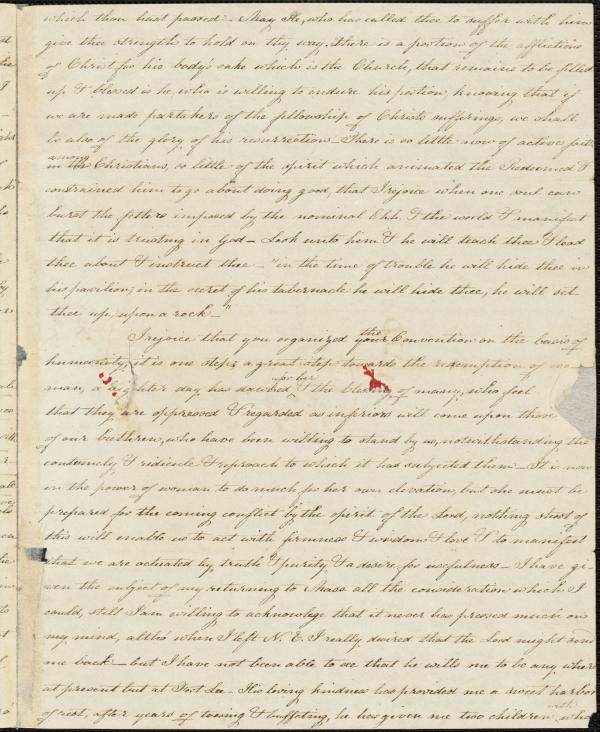 which thou hast passed - May He, who has called thee to suffer with him
give thee strength to hold on thy way, there is a portion of the afflictions
of Christ for his body's sake which is the Church, that remains to be filled
up & blessed is he, who is willing to endure his portion, knowing that if
we are made partakers of the fellowship of Christ's sufferings, we shall
be also of the glory of his resurrection - There is so little now of active faith
among Christians, so little of the spirit which animated the Redeemed &
constrained him to go about doing good, that I rejoice when one soul can
burst the fetters imposed by the nominal Chh. & the world & manifest
that it is trusting in God - Look unto him & he will teach thee & lead
thee about & instruct thee - "in the time of trouble he will hide thee in
his pavilion, in the secret of his tabernacle he will hide thee, he will set
thee up, upon a rock -"
I rejoice that you organized the Convention on the basis of
humanity, it is one step, a great step towards the redemption of wo-
man, a brighter day has dawned for her & the blessing of many, who feel
that they are oppressed & regarded as inferiors will come upon those
of our brethren, who have been willing to stand by us, notwithstanding the
contumely & ridicule & reproach to which it has subjected them - It is now
in the power of woman to do much for her own elevation, but she must be
prepared for the coming conflict by the spirit of the Lord, nothing short of
this will enable us to act with firmness & wisdom & love & to manifest
that we are actuated by truth & purity & a desire for usefulness - I have gi-
ven the subject of my returning to Mass. all the consideration which I
could, still I am willing to acknowlege that it never has pressed much on
my mind, altho' when I left N. E. I really desired that the Lord might send
me back - but I have not been able to see that he wills me to be any where
at present but at Fort Lee - His loving kindness has provided me a sweet harbor
of rest, after years of tossing & buffeting, he has given me two children, who